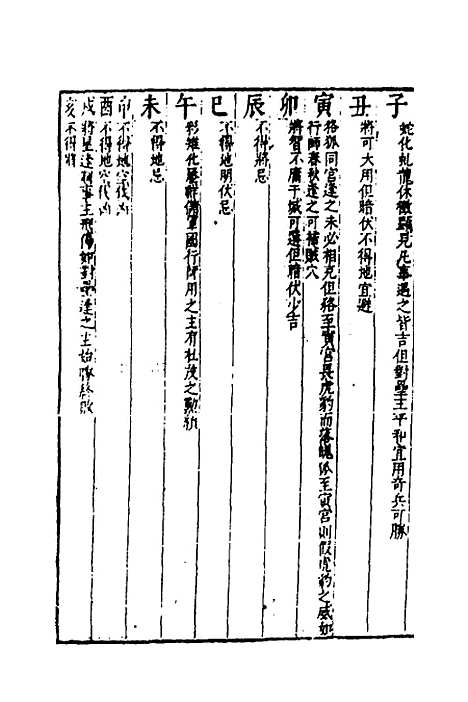 子
蛇化虬龍休徵顯見凡事遇之皆吉但對壘主平和宜用奇兵可勝
丑
將可大用但暗伏不得地宜避
寅
貉狐同宮逢之未必相克但貉至寅宮畏虎豹而落魄狐至寅宮則假虎豹之威如
行師春秋逢之可捕賊穴
卯
將智不廣干城可選但暗伏少吉
辰
不得將忌
巳
不得地明伏忌
午
彩雉化鸞群佛軍國行師用之主有杜茂之勳
未
不得地忌
申不得地空伐凶
酉不得地空伐凶
戌將星逢刑事主刑傷如對壘逢之主始勝終敗
亥不得將